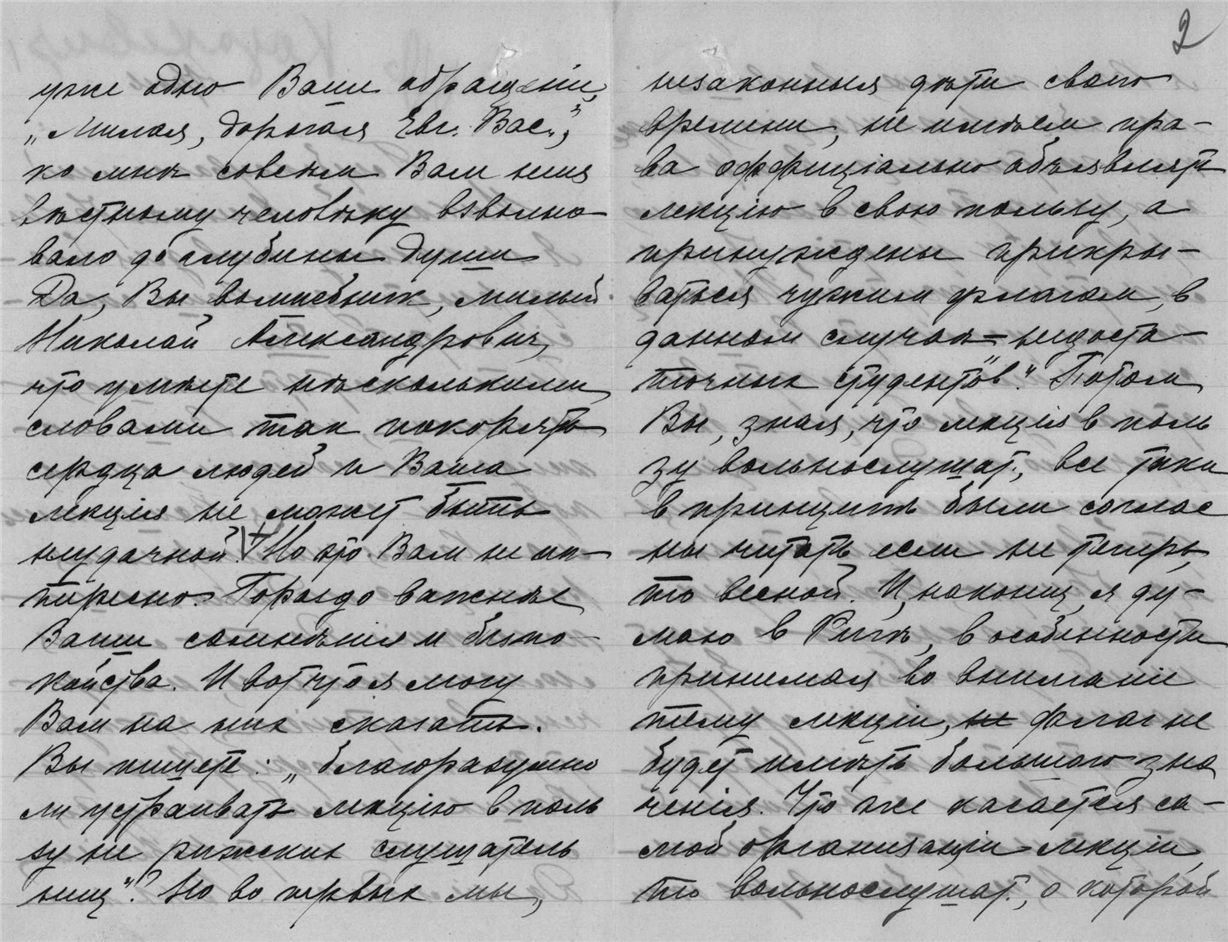 уже одно Ваше обращеніе,
„Милая, дорогая Евг. Вас.",
ко мнѣ совсѣм Вам неиз
вѣстному человѣку взволно
вало до глубины души
Да, Вы волшебник, милый
Николай Александрович,
что умѣете нѣсколькими
словами так покорять
сердца людей и Ваша
лекція не может быть
неудачной. Но это Вам не ин-
тересно. Гораздо важнѣе
Ваши сомнѣнія и безпо-
койства. И вот что я могу
Вам на них сказать.
Вы пишете: „благоразумно
ли устраивать лекцію в поль
зу не рижских слушатель
ниц"? Но во первых мы,
2
незаконныя дѣти своего
времени, не имѣем пра-
ва оффиціально объявлять
лекцію в свою пользу, а
принуждены прикры-
ваться чужим флагом, в
данном случаѣ – недоста-
точных студентов". Потом
Вы, зная, что лекція в поль
зу вольнослушат., все таки
в принципѣ были соглас
ны читать если не теперь,
то весной. И, наконец, я ду-
маю в Ригѣ, в особенности
принимая во вниманіе
тему лекціи, флаг не
будет имѣть большого зна
ченія. Что же касается са-
мой организаціи лекціи,
то вольнослушат., о которой